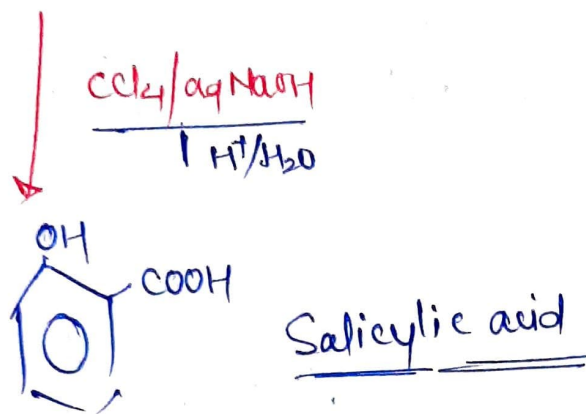 CCl4/aq NaOH
H+/H2O
OH
COOH
Salicylic acid